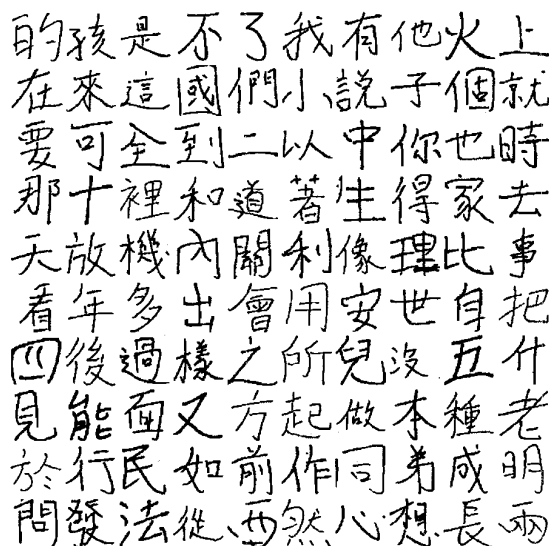 的孩是不了我有他火上
在來這國們小說子個就
要可全到二以中你也時
那十裡和道著生得家去
天放機內關利像理比事
看年多出會用安世自把
四後過樣之所兒沒五什
見能面又方起做本種老
於行民如前作同弟成明
問發法從西然心想長兩